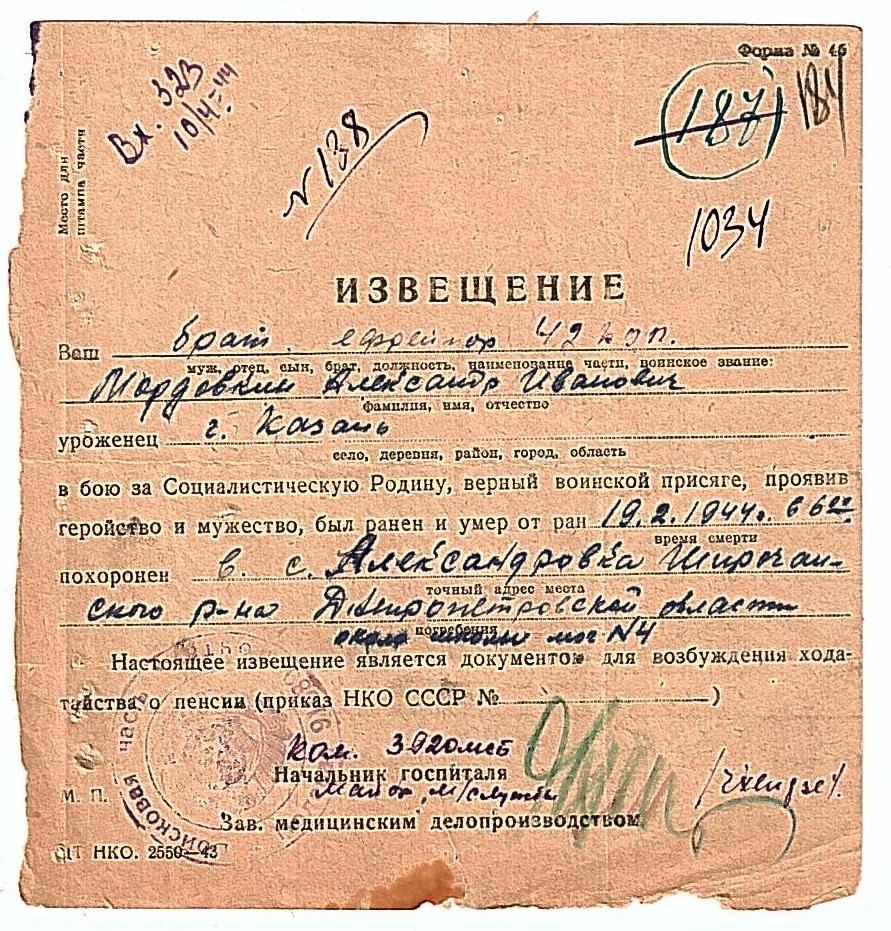 Форма № 46
Вх. 323
10/4-44
187
184
№ 138
1034
Место для
штампа части
ИЗВЕЩЕНИЕ
Ваш брат ефрейтор 42
муж, отец, сын, брат, должность, наименование части, воинское звание:
Александр Иванович
фамилия, имя, отчество
уроженец г. Казань
село, деревня, район, город, область
в бою за Социалистическую Родину, верный воинской присяге, проявив
геройство и мужество, был ранен и умер от ран 19.2.1944г.
время смерти
похоронен в с. Александровка
точный адрес места
ского р-на Днепропетровской области
погребения
около школы мог N4
Настоящее извещение является документом для возбуждения хода-
тайства о пенсии (приказ НКО СССР № )
Ком. 392 омсб
Начальник госпиталя
Майор м/службы
М. П.
Зав. медицинским делопроизводством
НКО. 2550-43
войсковая часть